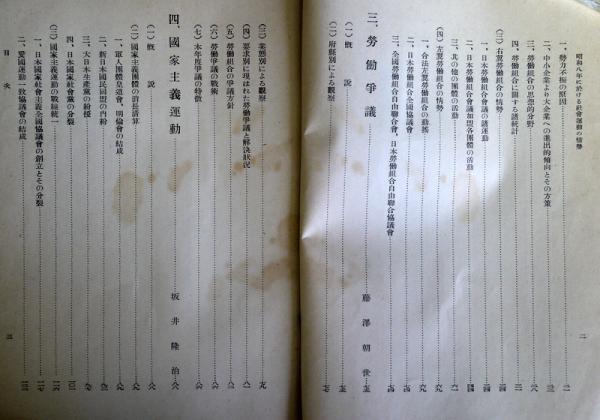 昭和八年に於ける社會運動の情勢
一、勢力不振の原因
二、中小企業より大企業への進出的傾向とその方策
三、勞働組合の思想的分野
四、勞働組合に關する諸統計
(三)右翼勞働組合の情勢
一、日本勞働組合會議の諸運動
二、日本勞働組合會議加盟各團體の活動
三、其の他の團體の活動
(四)左翼勞働組合の情勢
一、合法左翼勞働組合の動搖
二、日本勞働組合全國協議會
三、全國勞働組合自由聯合會、日本勞働組合自由聯合協議會
三、勞働爭議 藤澤朝世
(一)概說
(二)府縣別による觀察
二
(三)業態別による觀察
(四)要求別に現はれた勞働爭議と解決狀況
(五)勞働組合の爭議方針
(六)勞働爭議の戰術
(七)本年度爭議の特徵
四、國家主義運動 坂井隆治
(一)槪說
(二)國家主義團體の消長淸算
一、軍人團體皇道會、明倫會の結成
二、新日本國民同盟の內紛
三、大日本生產黨の紛擾
四、日本國家社會黨の分裂
(三)國家主義運動の戰線統一
一、日本國家社會主義全國協議會の創立とその分裂
二、愛國運動一致協議會の結成
目次
三